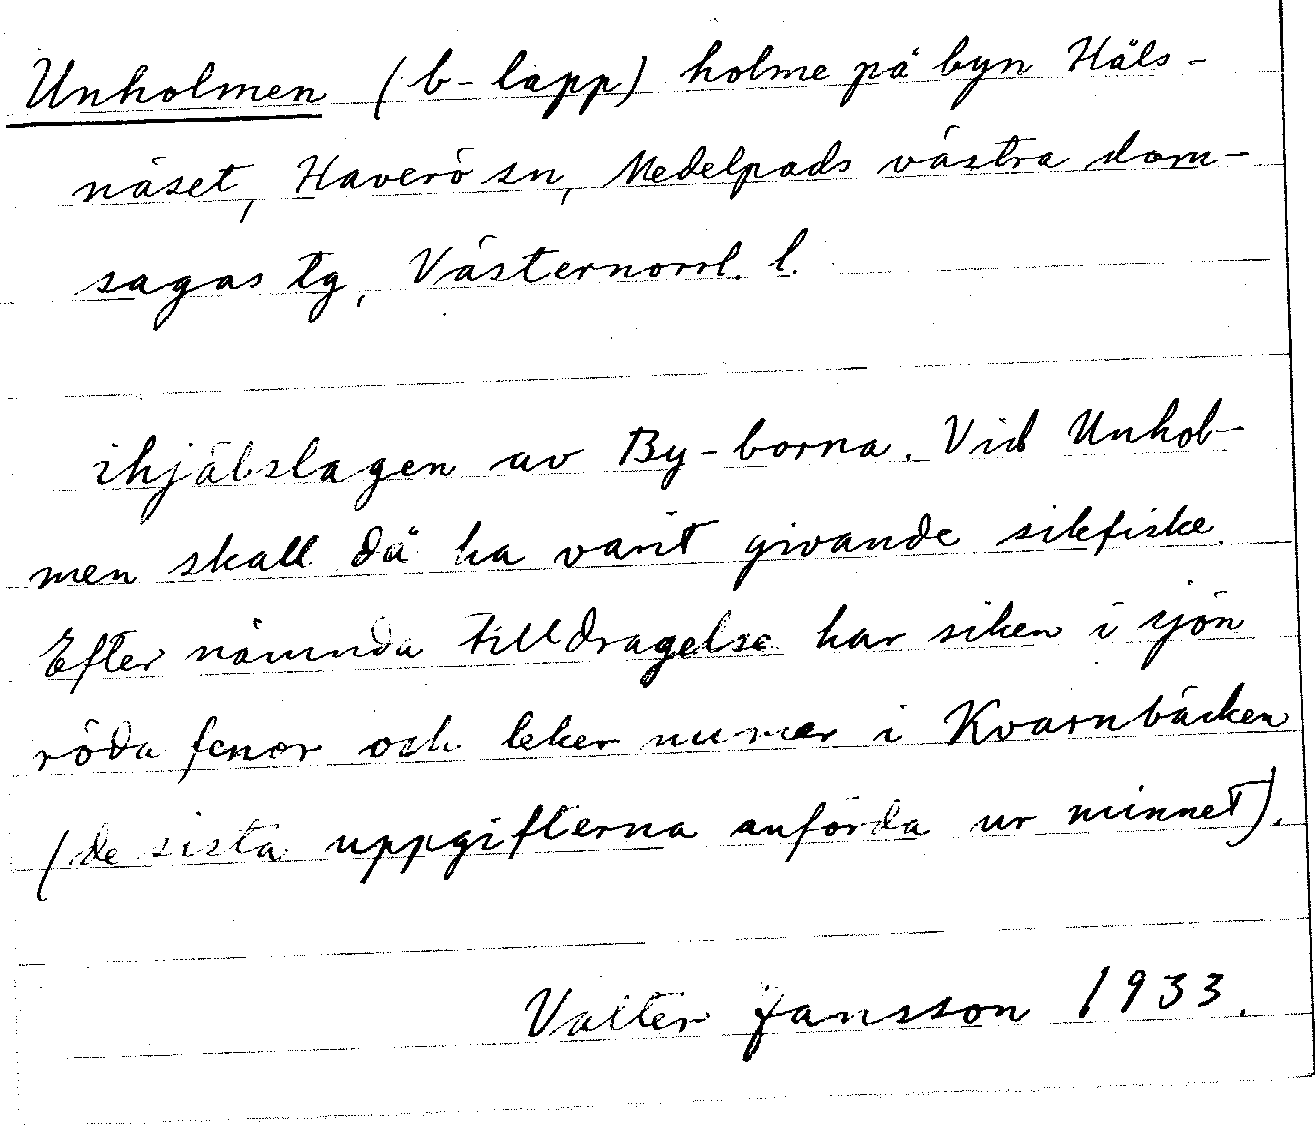 Unholmen (b-lapp) holme på byn Häls-
näset, Haverö sn, Medelpads västra dom-
sagas tg, Västernorrl. l.
ihjälslagen av By-borna. Vid Unhol-
men skall då ha varit givande sikfiske.
Efter nämnda tilldragelse har siken i sjön
röda fenor och leker numer i Kvarnbäcken
(de sista uppgifterna anförda ur minnet).
Valter Jansson 1933.